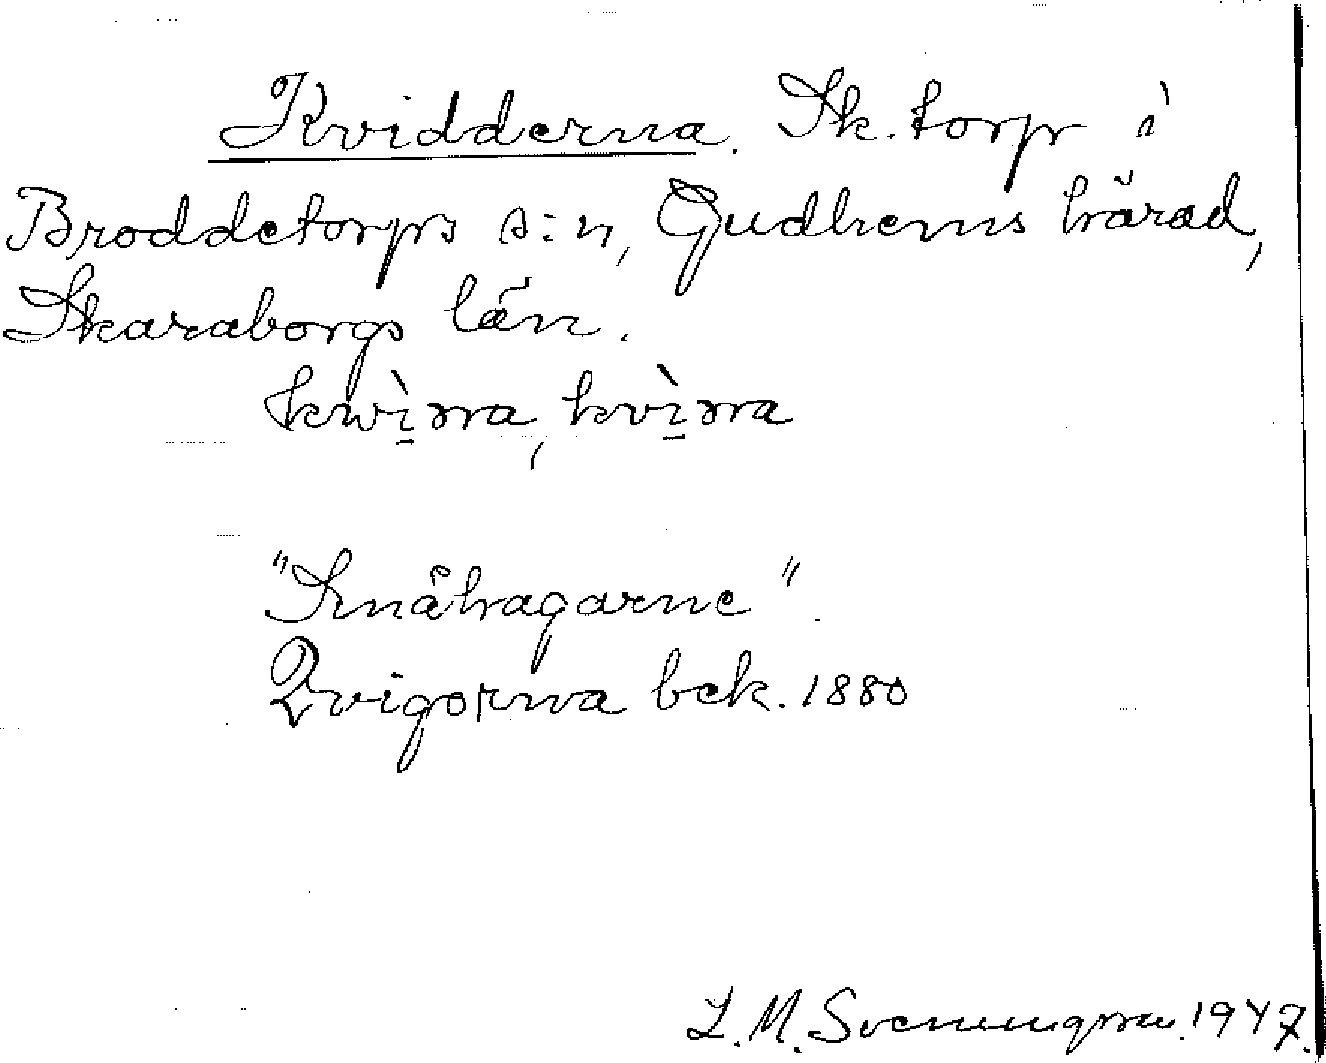 Kvidderna. Sk. torp i
Broddetorps s:n, Gudhems härad,
Skaraborgs län.
kwì̲rra, kvì̲rra
"Småhagarne".
Qvigorna bek. 1880
L. M. Svenungsson. 1947.